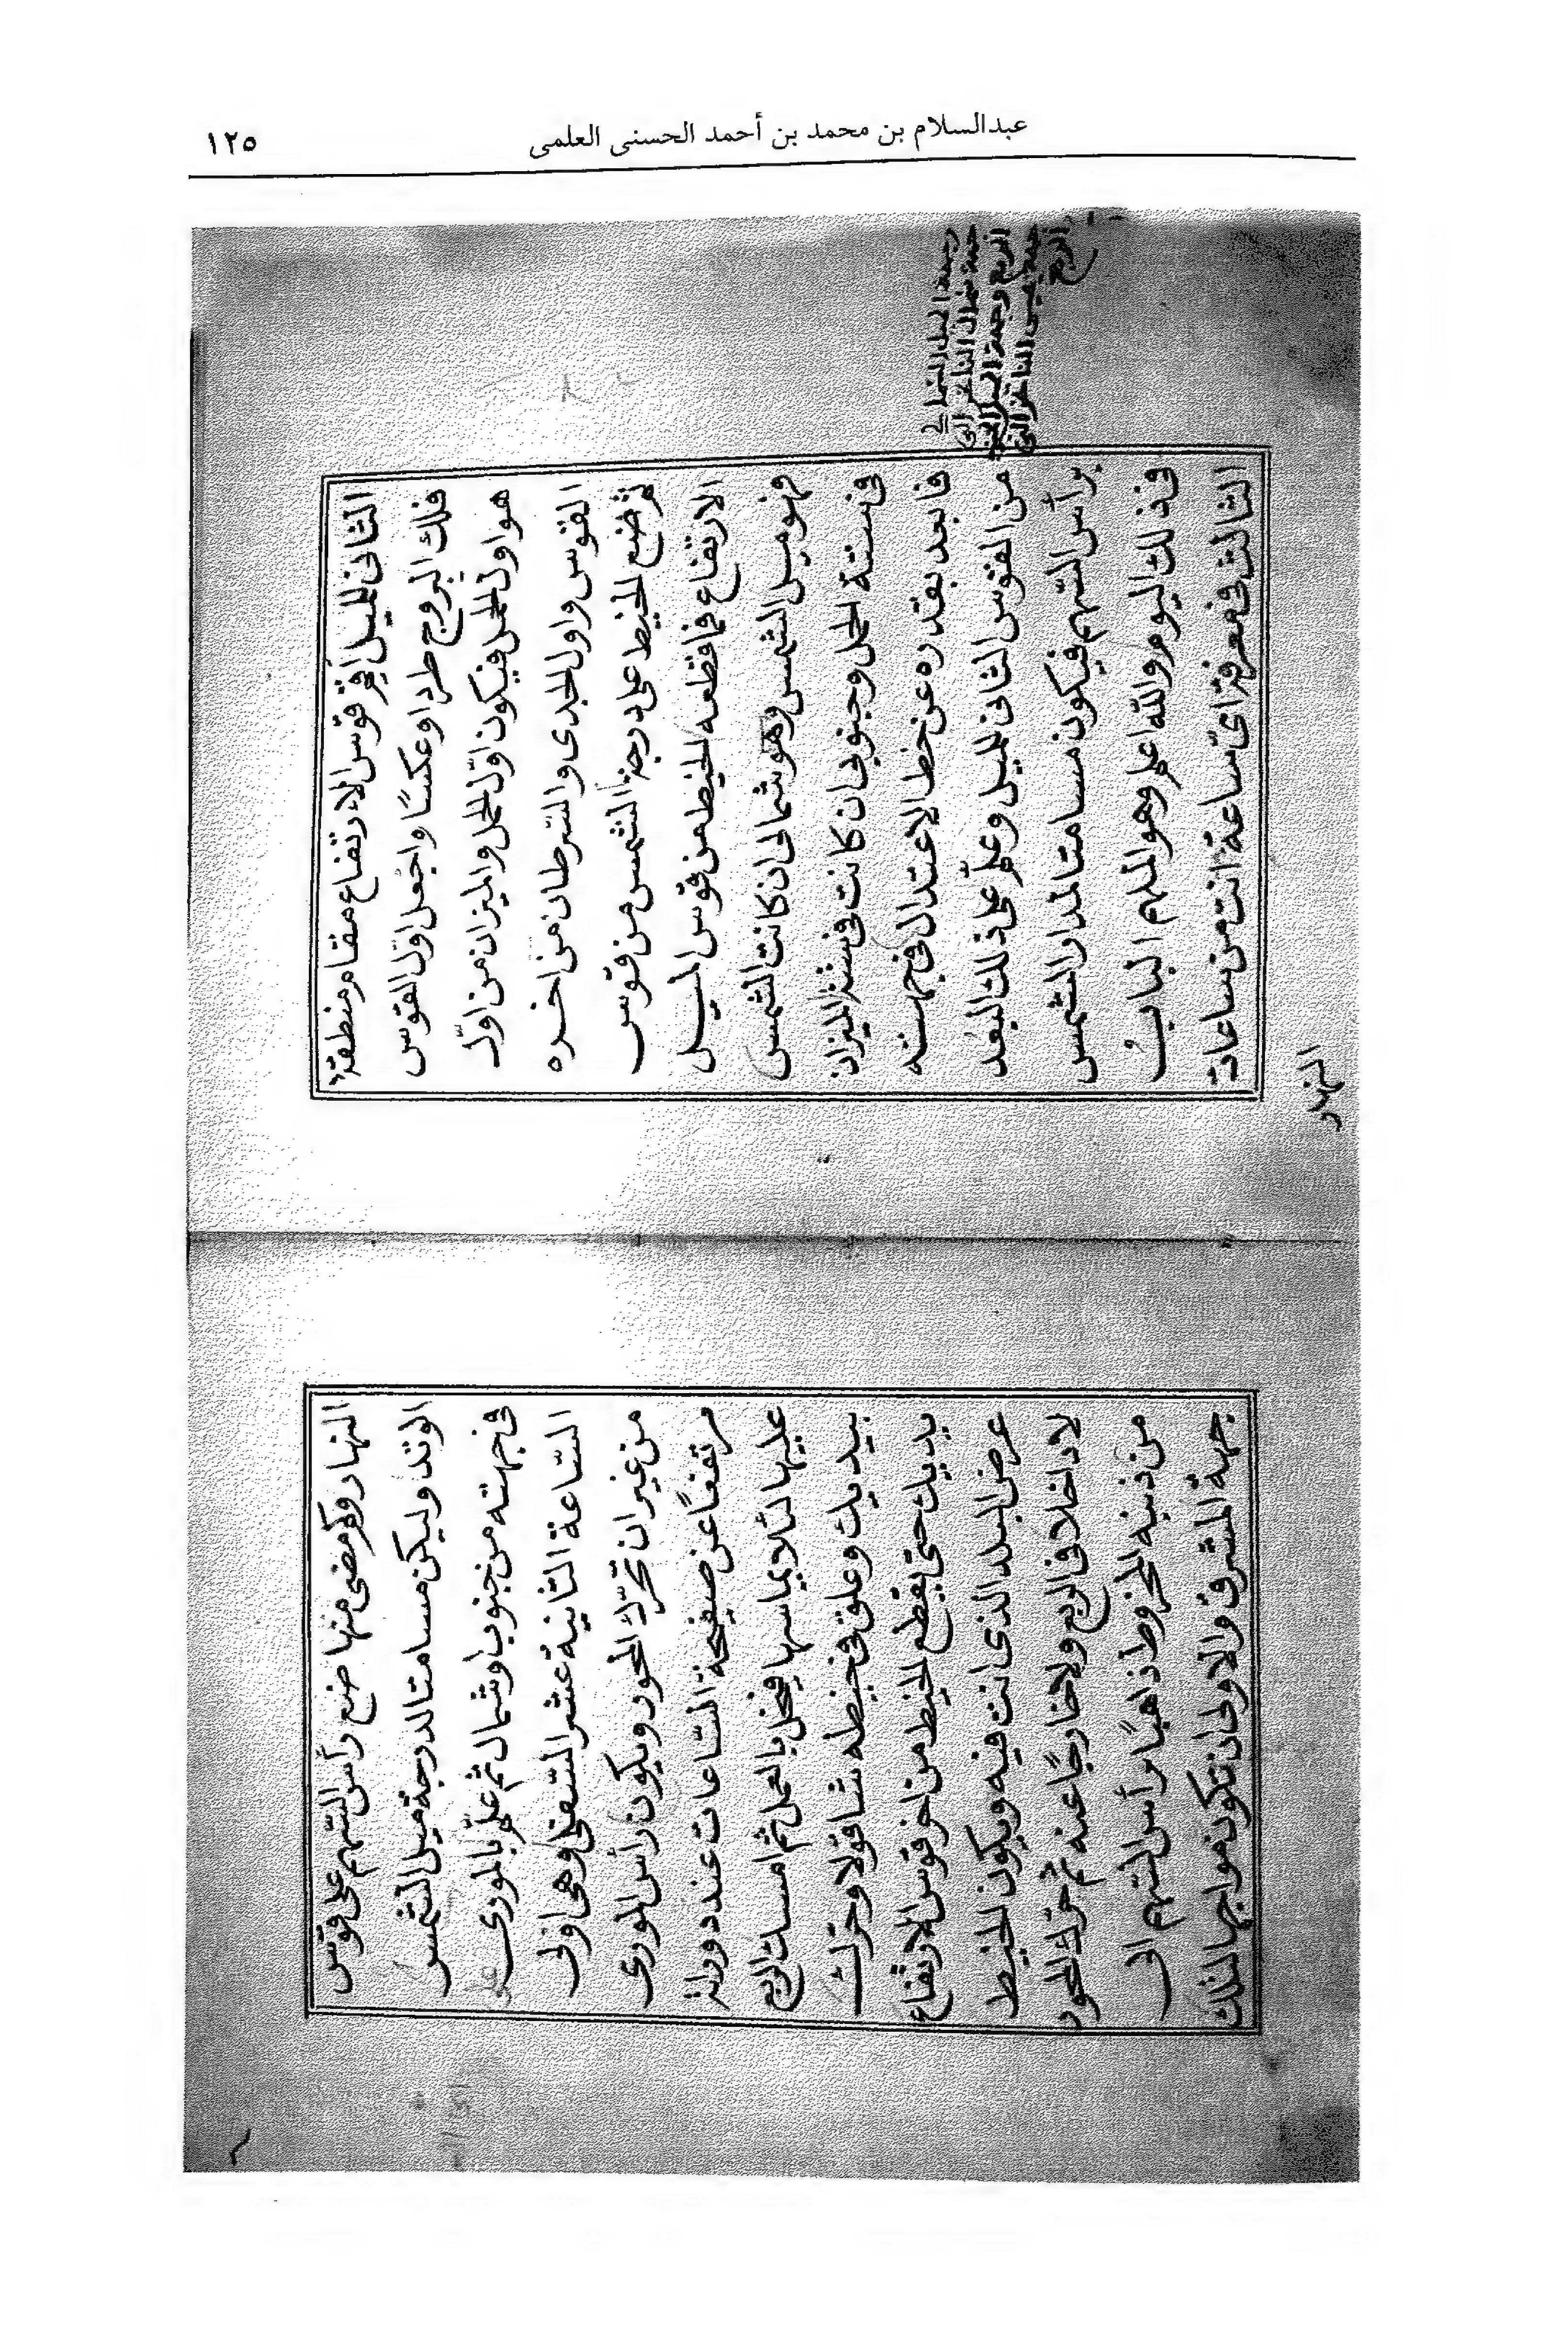 عبدالسلام بن محمد بن أحمد الحسنی العلمی
١٢٥
الثانى للميل اقم قوس الارتفاع مقام منطقة
فلك البروج طردا وعكسًا واجعل اوّل القوس
هو اول الحمل فيكون اوّل الحمل والميزان من اوّل
القوس واول الجدى والسرطان من اخره
ثم ضع الخيط على درجة الشمس من قوس
الارتفاع فما قطعه الخيط من قوس الميل
فهو ميل الشمس وهو شمالى ان كانت الشمس
فى ستة الحمل وجنوبى ان كانت فى ستة الميزان
فابعد بقدره عن خط الاعتدال فى جهته
من القوس الثانى للميل وعلّم على ذلك البعد
برأس السهم فيكون مسامتا لمدار الشمس
فى ذلك اليوم والله اعلم وهو الملهم البابُ
الثالث فى معرفة اىّ ساعة انت من ساعات
وجهة الميل الشمالى
جهة شمال الناظر الى
الربع وجهة الميل الجنوبى
جهة يمين الناظر الى
الربع
النهار
النهار وكم مضى منها ضع رأس السهم على قوس
الوتد وليكن مسامتا لدرجة ميل الشمس
فى جهته من جنوب او شمال ثم علّم بالمورى على
الساعة الثانية عشر السفلى وهى اولى
من غير ان تحرّك المحور ويكون رأس المورى
مرتفعًا عن صفيحة الساعات عند دورانه
عليها لئلا يماسها فيخل بالعمل ثم امسك الربع
بيديك وعلق فى خيطه شاقولا وحرك
يديك حتى يقطع الخيط من اخر قوس الارتفاع
عرض البلد الذى انت فيه ويكون الخيط
لا داخلا فى الربع ولا خارجًا عنه ثم حرّك المحور
من ذنبه المخروط ذاهبًا برأس السهم الى
جهة المشرق والاولى ان تكون مواجها لتلك